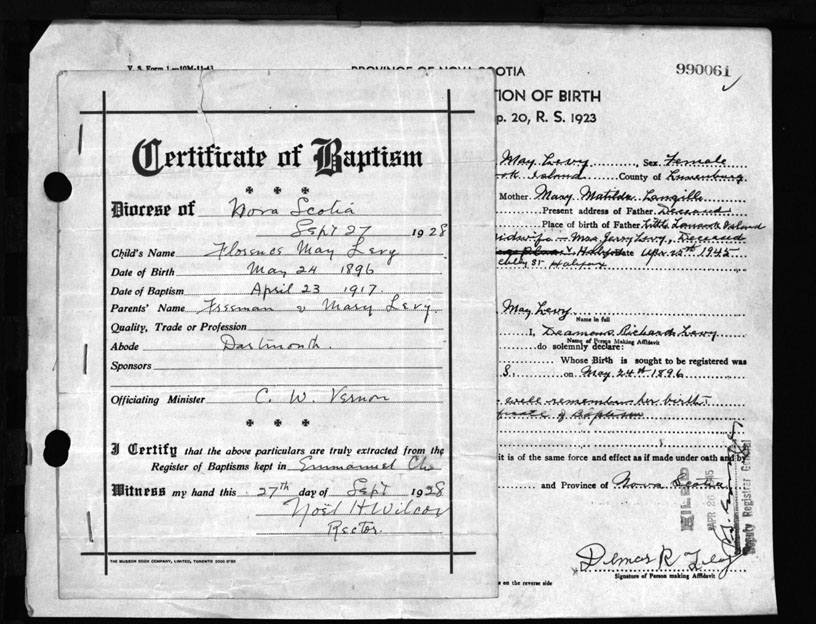 V. S. Form 1—10M-11-43
PROVINCE OF NOVA SCOTIA
990061
TION OF BIRTH
p. 20, R. S. 1923
Certificate of Baptism
Diocese of Nova Scotia
Sept 27 1928
Child's Name Florence May Levy
Date of Birth May 24 1896
Date of Baptism April 23 1917.
Parents' Name Freeman & Mary Levy.
Quality, Trade or Profession
Abode Dartmouth.
Sponsors
Officiating Minister C. W. Vernon
I Certify that the above particulars are truly extracted from the
Register of Baptisms kept in Emmanuel Ch.
Witness my hand this 27th day of Sept 1928
Noel H Wilcox
Rector.
THE MUSSON BOOK COMPANY, LIMITED, TORONTO
May Levy, Sex Female
Island County of Lunenburg
Mother Mary Matilda Langille
Present address of Father Deceased
Place of birth of Father Little Tancook Island
Midwife - Mrs Jerry Levy, Deceased
Date Apr 25th 1945
St Halifax
May Levy
Name in full
I, Deamons Richard Levy
Name of Person Making Affidavit
do solemnly declare:
Whose Birth is sought to be registered was
S. on May 24th 1896
well remember her birth
of Baptism
it is of the same force and effect as if made under oath and by
and Province of Nova Scotia
FILED
APR 26 1945
Deputy Registrar General
Signature of Person making Affidavit
s on the reverse side